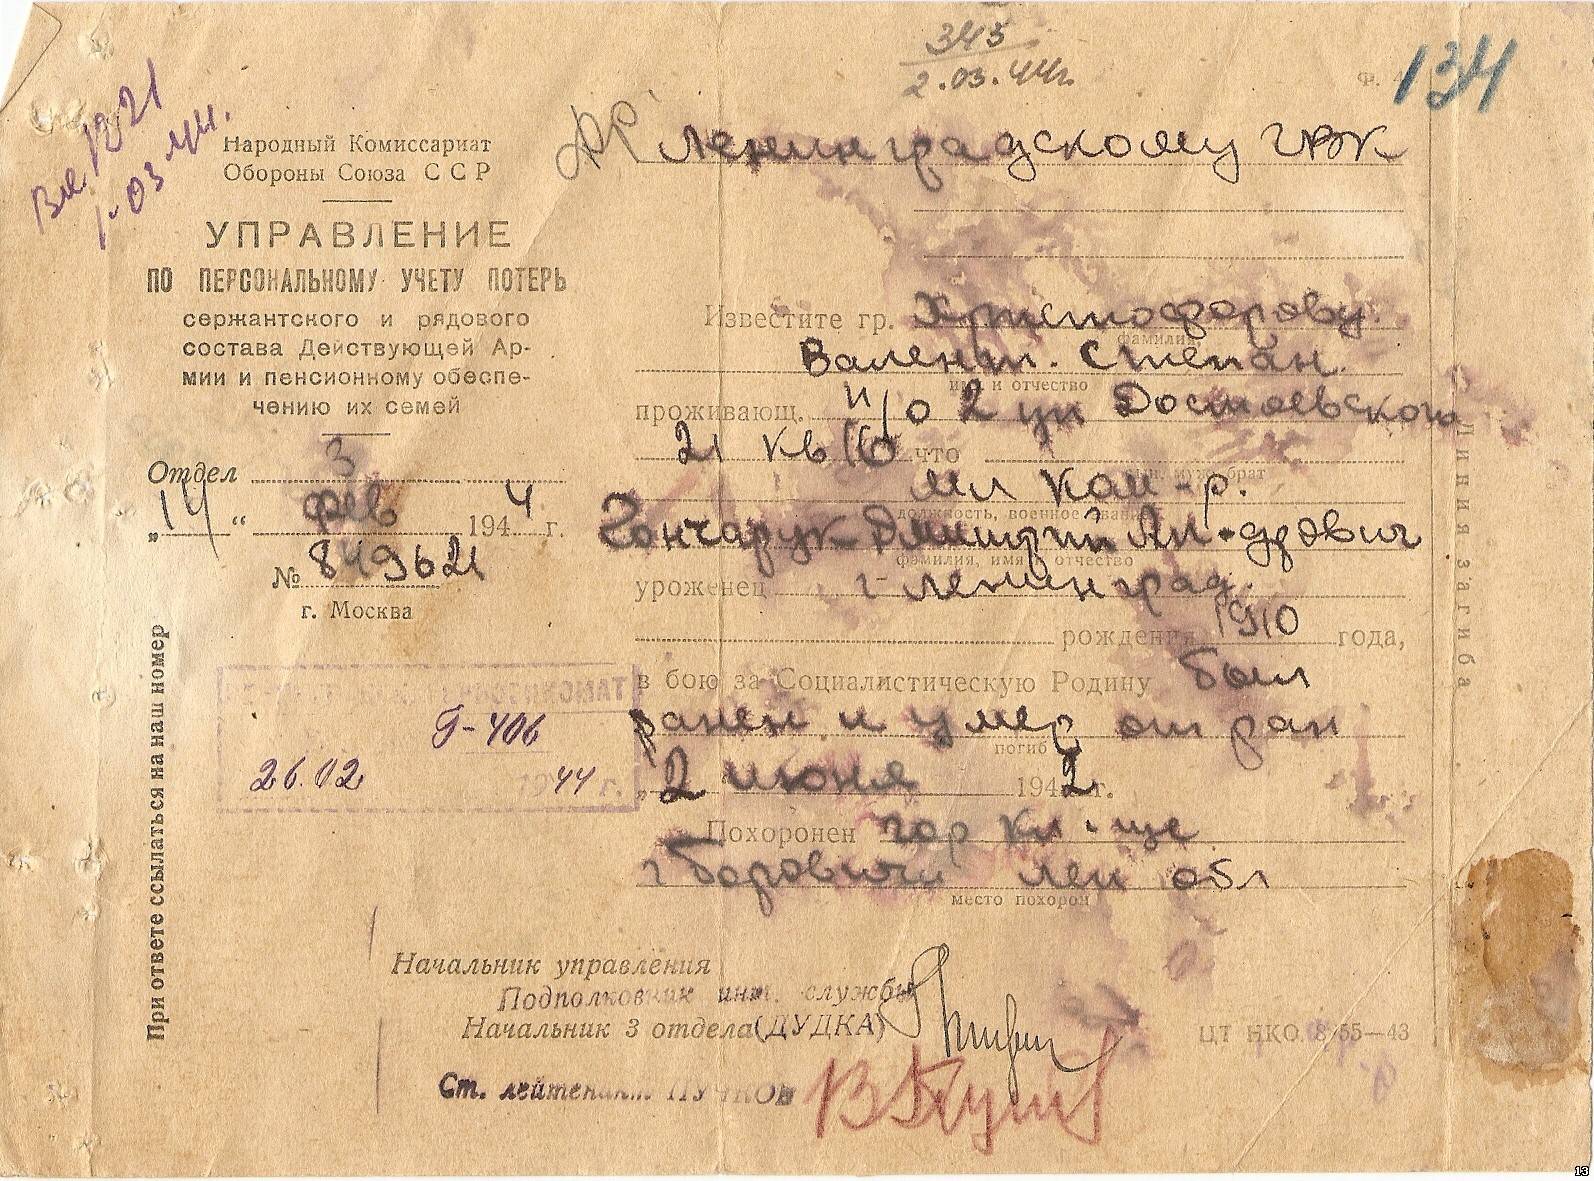 345
2.03.44г.
Ф. 4
134
Вх. 1221
1-03
Народный Комиссариат
Обороны Союза ССР
УПРАВЛЕНИЕ
ПО ПЕРСОНАЛЬНОМУ УЧЕТУ ПОТЕРЬ
сержантского и рядового
состава Действующей Ар-
мии и пенсионному обеспе-
чению их семей
Отдел 3
„14“ фев 1944 г.
№ 849621
г. Москва
При ответе ссылаться на наш номер
Г-406
26.02 1944 г.
Ленинградскому ГВК
Известите гр. Христофорову
фамилия,
Валент. Степан.
имя и отчество
проживающ. п/о 2 ул Достоевского
21 кв 16 что
сын, муж, брат
мл ком-р.
должность, военное звание
Гончарук Дмитрий Ал-дрович
фамилия, имя, отчество
уроженец г Ленинград.
рождения 1910 года,
в бою за Социалистическую Родину был
ранен и умер от ран
погиб
„2 июня 1942 г.
Похоронен гор кл-ще
г Боровичи лен обл
место похорон
Линия загиба
Начальник управления
Подполковник инт. службы
Начальник 3 отдела (ДУДКА)
Ст. лейтенант ПУЧКОВ
ЦТ НКО. 8/55—43
13